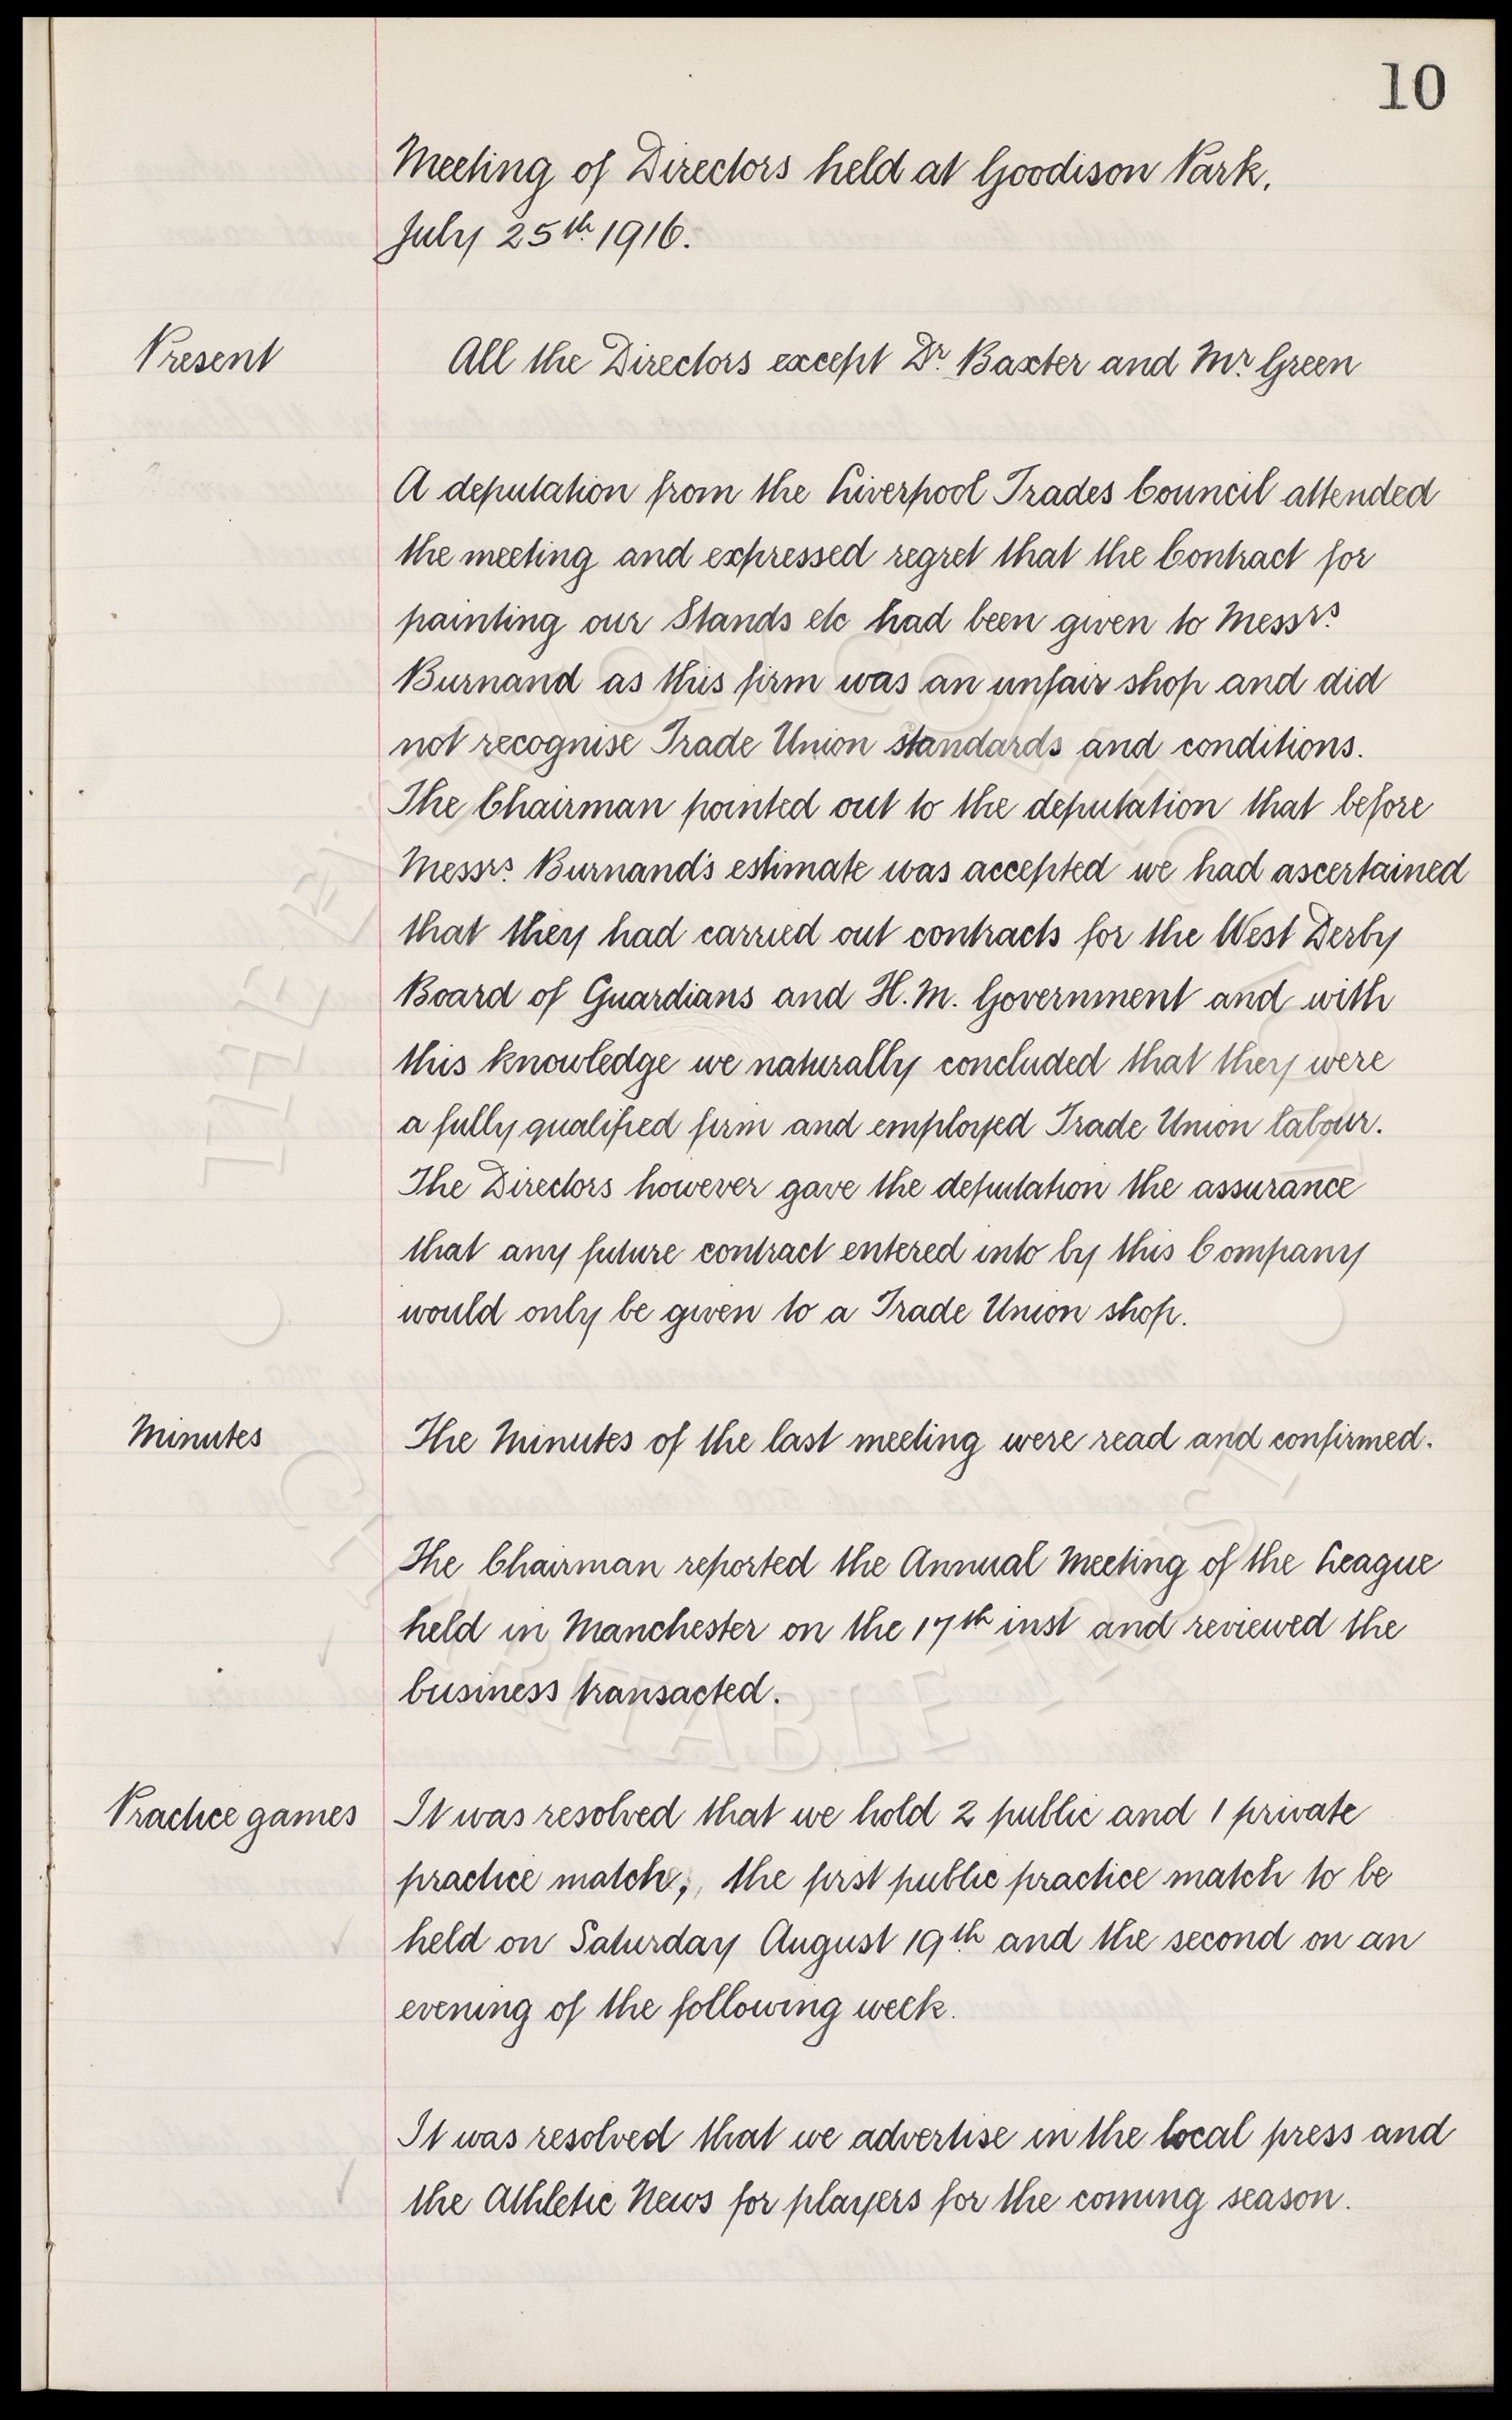 10
Meeting of Directors held at Goodison Park,
July 25th 1916.
Present
All the Directors except Dr. Baxter and Mr. Green
A deputation from the Liverpool Trades Council attended
the meeting and expressed regret that the Contract for
painting our Stands etc had been given to Messrs.
Burnand as this firm was an unfair shop and did
not recognise Trade Union standards and conditions.
The Chairman pointed out to the deputation that before
Messrs. Burnand's estimate was accepted we had ascertained
that they had carried out contracts for the West Derby
Board of Guardians and H.M. Government and with
this knowledge we naturally concluded that they were
a fully qualified firm and employed Trade Union labour.
The Directors however gave the deputation the assurance
that any future contract entered into by this Company
would only be given to a Trade Union shop.
Minutes
The Minutes of the last meeting were read and confirmed.
The Chairman reported the Annual Meeting of the League
held in Manchester on the 17th inst and reviewed the
business transacted.
Practice games
It was resolved that we hold 2 public and 1 private
practice match; the first public practice match to be
held on Saturday August 19th and the second on an
evening of the following week.
It was resolved that we advertise in the local press and
the Athletic News for players for the coming season.